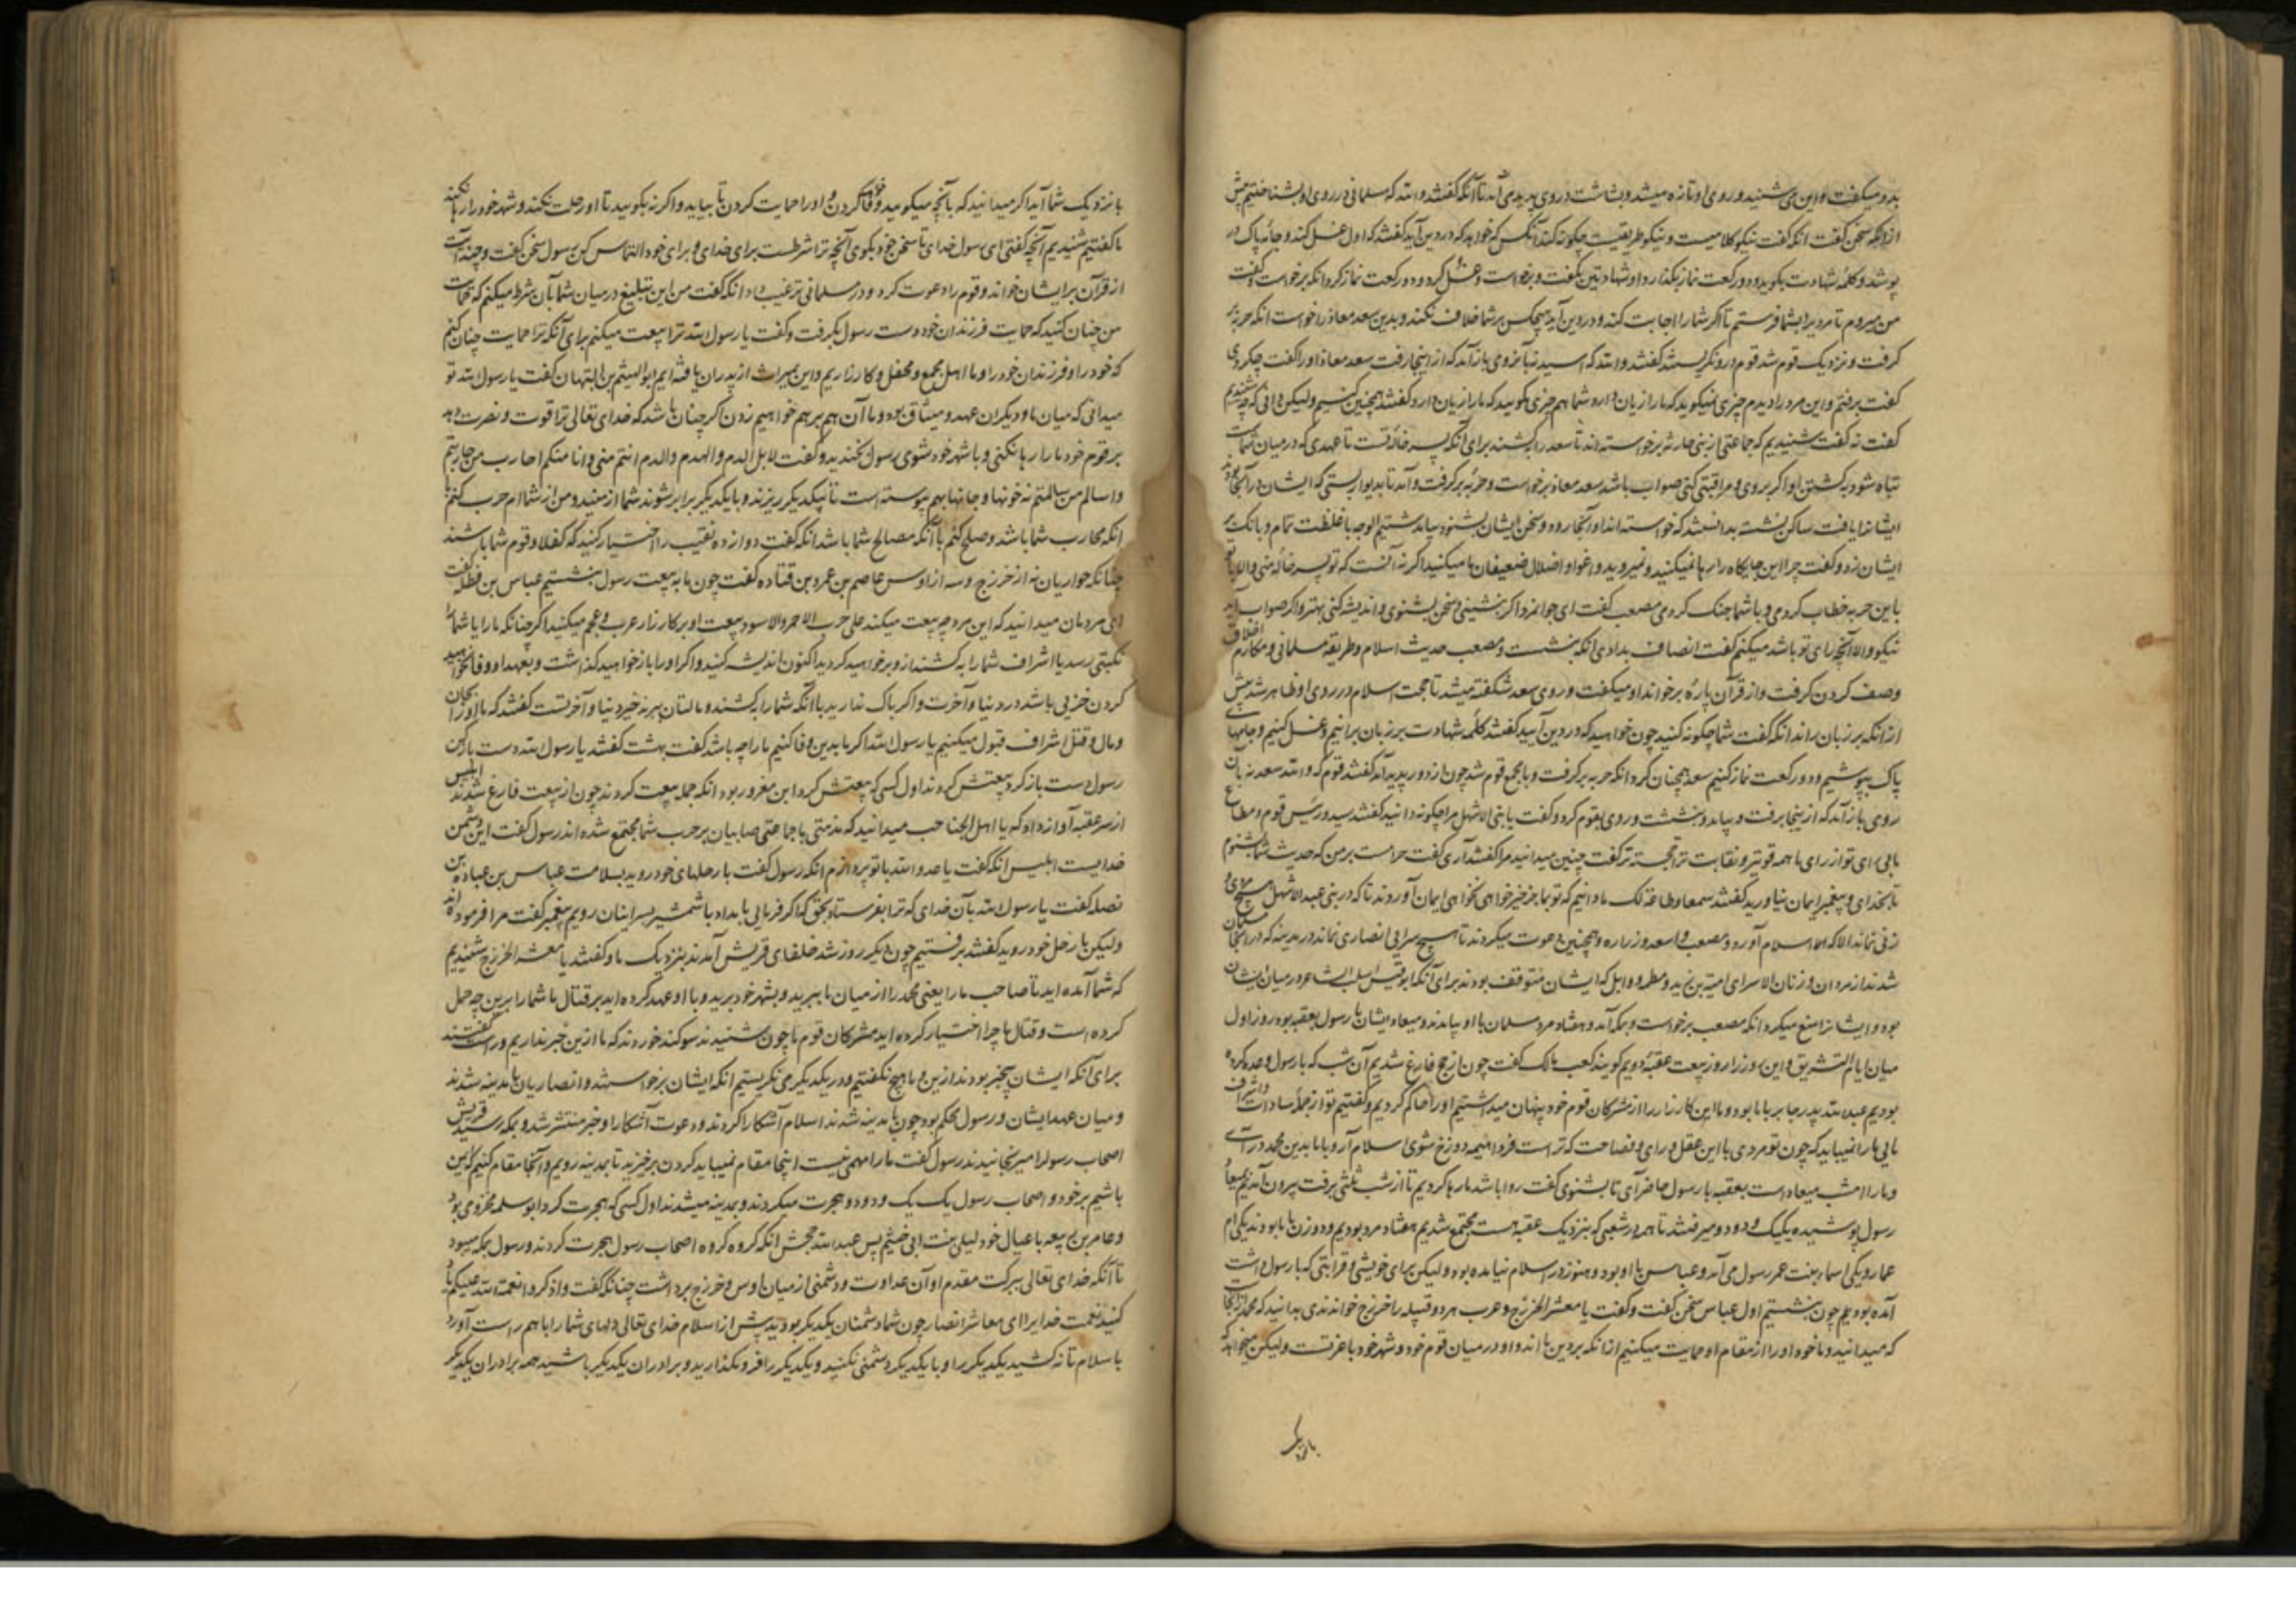 بدو میگفت و این می شنید و روی او تازه میشد و بشاشت در وی پدید می آمد تا آنکه گفتند والله که مسلمانی در روی او بشناختیم پیش
ازانکه سخن گفت انکه گفت نیکو کلامیست و نیکو طریقیست چگونه کند آنکس که خواهد که در دین آید گفتند که اول غسل کند و جامه پاک در
پوشد و کلمه شهادت بگوید و دو رکعت نماز بگذارد او شهادتین بگفت و برخواست و غسل کرد و دو رکعت نماز کرد انکه برخواست و گفت
من میروم تا مردیرا بشما فرستم تا اگر شما را اجابت کند و در دین آید هیچکس بر شما خلاف نکند و بدین سعد معاذ را خواست انکه حربه بر
گرفت و نزدیک قوم شد قوم درو نگریستند گفتند والله که اسید نه بآنروی باز آمد که از اینجا رفت سعد معاذ او را گفت چکردی
گفت برفتم و این مرد را دیدم چیزی نمیگوید که ما را زیان دارد شما هم چیزی مگویید که ما را زیان دارد گفتند همچنین کنیم ولیکن دانی که چه شنیدیم
گفت نه گفت شنیدیم که جماعتی از بنی حارثه برخواسته اند تا سعد را بکشند برای آنکه پسر خاله تست تا عهدی که درمیان شماست
تباه شود بکشتن او اگر بروی و مراقبتی کنی صواب باشد سعد معاذ برخواست و حربه برگرفت و آمد تا بدیوار بستی که ایشان در آنجا بودند
ایشانرا یافت ساکن نشسته بدانست که خواسته اند او آنجا رود و سخن ایشان بشنود بیامد شتیم الوجه با غلظت تمام و بانک بر
ایشان زد و گفت چرا این جایگاه را رها نمیکنید و نمیروید و اغوا و اضلال ضعیفان ما میکنید اگر نه آنست که تو پسر خاله منی والا با تو
باین حربه خطاب کردمی و با شما جنک کردمی مصعب گفت ای جوانمرد اگر بنشینی و سخن بشنوی و اندیشه کنی بهتر و اگر صواب آید
نیکو والا آنچه رای تو باشد میکنیم گفت انصاف بدادی انکه بنشست و مصعب حدیث اسلام و طریقه مسلمانی و مکارم اخلاق
وصف کردن گرفت و از قرآن پاره برخواند او میگفت و روی سعد شکفته میشد تا حجت اسلام در روی او ظاهر شد پیش
ازانکه بر زبان راند انکه گفت شما چگونه کنید چون خواهید که در دین آیید گفتند کلمه شهادت بر زبان برانیم و غسل کنیم و جامهای
پاک بپوشیم و دو رکعت نماز کنیم سعد همچنان کرد انکه حربه برگرفت و با مجمع قوم شد چون از دور پدید آمد گفتند قوم که والله سعد نه بآن
روی باز آمد که از اینجا برفت و بیامد و بنشست و روی بقوم کرد و گفت یا بنی الاشهل مرا چگونه دانید گفتند سید و رئیس قوم و مطاع
مایی رای تو از رای ما همه قویتر و نقابت تو خجسته تر گفت چنین میدانید مرا گفتند آری گفت حرامست بر من که حدیث شما بشنوم
تا بخدای و پیغمبر ایمان نیاورید گفتند سمعا و طاعة لک ما دانیم که تو بما جز خیر نخواهی ایمان آوردند تا که در بنی عبدالاشهل هیچ مردی و
زنی نماند الا که اسلام آورد و مصعب و اسعد زراره همچنین دعوت میکردند تا هیچ سرایی انصاری نماند در مدینه که در آنجا مسلمان
شدند از مردان و زنان الا سرای امیة بن زید و خطمه و وایل که ایشان متوقف بودند برای آنکه ابو قیس اسلت شاعر درمیان ایشان
بود و ایشانرا منع میکرد انکه مصعب برخواست و بمکه آمد و هفتاد مرد مسلمان با او بیامدند و میعاد ایشان با رسول بعقبه بود روز اول
میان ایام التشریق و این روز را روز بیعت عقبه دویم گویند کعب مالک گفت چون از حج فارغ شدیم آن شب که با رسول وعده کرده
بودیم عبدالله پدر جابر با ما بود و ما این کار را از مشرکان قوم خود پنهان میداشتیم او را حاکم کردیم و گفتیم تو از جمله سادات و اشراف
مایی ما را نمیباید که چون تو مردی با این عقل و رای و فصاحت که تراست فردا هیمه دوزخ شوی اسلام آر و با ما بدین محمد در آی
و ما را امشب میعاد است بعقبه با رسول حاضر آی تا بشنوی گفت روا باشد ما رها کردیم تا از شب ثلثی برفت بیرون آمدیم بمیعاد
رسول پوشیده یکیک و دو دو میرفتند تا همه در شعبی که بنزدیک عقبه است مجتمع شدیم هفتاد مرد بودیم و دو زن با ما بودند یکی ام
عماره و یکی اسما بنت عمر رسول می آمد و عباس با او بود و هنوز در اسلام نیامده بود ولیکن برای خویشی و قرابتی که با رسول داشت
آمده بود بهم چون بنشستیم اول عباس سخن گفت و گفت یا معشر الخزرج و عرب هر دو قبیله را خزرج خواندندی بدانید که محمد از ماست
که میدانید و ما خود او را از مقام او حمایت میکنیم ازانکه بر دین ما اند و او درمیان قوم خود و شهر خود با عزتست ولیکن میخواهد که
با نزدیک
با نزدیک شما آید اگر میدانید که بآنچه میگویید وفا خواهید کردن و او را حمایت کردن تا بیاید و اگر نه بگویید تا او رحلت نکند و شهر خود را رها نکند
ما گفتیم شنیدیم آنچه گفتی ای رسول خدای تا سخن خود بگوی آنچه ترا شرطست برای خدای و برای خود التماس کن رسول سخن گفت و چند آیت
از قرآن بر ایشان خواند و قوم را دعوت کرد و در مسلمانی ترغیب داد انکه گفت من این تبلیغ درمیان شما بآن شرط میکنم که حمایت
من چنان کنید که حمایت فرزندان خود دست رسول بگرفت و گفت یا رسول الله ترا بیعت میکنم برای آنکه ترا حمایت چنان کنم
که خود را و فرزندان خود را و ما اهل مجمع و محفل و کارزاریم و این بمیراث از پدران یافته ایم ابوالهیثم بن التیهان گفت یا رسول الله تو
میدانی که میان ما و دیگران عهد و میثاق بود و ما آن همه بر هم خواهیم زدن اگر چنان باشد که خدای تعالی ترا قوت و نصرت دهد
بر قوم خود ما را رها نکنی و با شهر خود شوی رسول بخندید و گفت لا بل الدم والهدم والدم انتم منی وانا منکم احارب من حاربتم
واسالم من سالمتم نه خونها و جانها بهم پیوسته است تا بیکدیگر ریزند و با یکدیگر برابر شوند شما از منید و من از شماام حرب کنم با
انکه محارب شما باشد و صلح کنم با آنکه مصالح شما باشد انکه گفت دوازده نقیب را اختیار کنید که کفلا و قوم شما باشند
چنانکه حواریان نه از خزرج و سه از اوس عاصم بن عمرو بن قتاده گفت چون ما به بیعت رسول بنشستیم عباس بن فضله گفت
ای مردمان میدانید که این مرد چه بیعت میکند علی حرب الاحمر والاسود بیعت او بر کارزار عرب و عجم میکنید اگر چنانکه ما را یا شما را
نکبتی رسد یا اشراف شما را بکشند ازو برخواهید گردید اکنون اندیشه کنید و اگر او را باز خواهید گذاشت و بعهد او وفا نخواهید
کردن خزیی باشد در دنیا و آخرت و اگر باک ندارید با آنکه شما را بکشند و مالتان ببرند خیر دنیا و آخرتست گفتند که ما او را بجان
و مال و قتل اشراف قبول میکنیم یا رسول الله اگر ما بدین وفا کنیم ما را چه باشد گفت بهشت گفتند یا رسول الله دست باز کن
رسول دست باز کرد بیعتش کردند اول کسی که بیعتش کرد ابن مغرور بود انکه جمله بیعت کردند چون از بیعت فارغ شدند ابلیس
از سر عقبه آواز داد که یا اهل الجباجب میدانید که مذممی با جماعتی صابیان بر حرب شما مجتمع شده اند رسول گفت این دشمن
خدایست ابلیس انکه گفت یا عدو الله با تو پردازم انکه رسول گفت با رحلهای خود روید بسلامت عباس بن عباده بن
نضله گفت یا رسول الله بآن خدای که ترا بفرستاد بحق که اگر فرمایی بامداد با شمشیر بسر اینان رویم پیغمبر گفت مرا نفرموده اند
ولیکن با رحل خود روید گفتند برفتیم چون دیگر روز شد خلفای قریش آمدند بنزدیک ما و گفتند یا معشر الخزرج شنیدیم
که شما آمده اید تا صاحب ما را یعنی محمد را از میان ما ببرید و بشهر خود برید و با او عهد کرده اید بر قتال ما شما را برین چه حمل
کرده است و قتال ما چرا اختیار کرده اید مشرکان قوم ما چون شنیدند سوگند خوردند که ما ازین خبر نداریم و راست گفتند
برای آنکه ایشان بیخبر بودند ازین و ما هیچ نگفتیم و در یکدیگر می نگریستیم انکه ایشان برخواستند و انصاریان با مدینه شدند
و میان عهد ایشان و رسول محکم بود چون با مدینه شدند اسلام آشکارا کردند و دعوت آشکارا و خبر منتشر شد و بمکه رسید قریش
اصحاب رسول را میرنجانیدند رسول گفت ما را مهمی نیست اینجا مقام نمیباید کردن برخیزید تا بمدینه رویم و آنجا مقام کنیم که ایمن
باشیم بر خود و اصحاب رسول یک یک و دو دو هجرت میکردند و بمدینه میشدند اول کسی که هجرت کرد ابو سلمه مخزومی بود
و عامر بن ربیعه با عیال خود لیلی بنت ابی خثیم پس عبدالله جحش انکه گروه گروه اصحاب رسول هجرت کردند و رسول بمکه میبود
تا آنکه خدای تعالی ببرکت مقدم او آن عداوت و دشمنی از میان اوس و خزرج برداشت چنانکه گفت واذکروا نعمت الله علیکم یاد
کنید نعمت خدایرا ای معاشر انصار چون شما دشمنان یکدیگر بودید پیش از اسلام خدای تعالی دلهای شما را با هم راست آورد
باسلام تا نه کشید یکدیگر را و با یکدیگر دشمنی نکنید و یکدیگر را فرو نگذارید و برادران یکدیگر باشید همه برادران یکدیگر